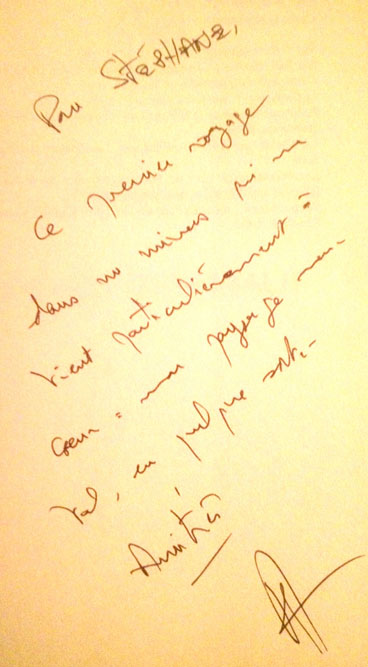 Pour STÉPHANE,
Ce premier voyage
dans un univers qui me
tient particulièrement à
cœur : mon paysage men-
tal, en quelque sorte.
Amitiés